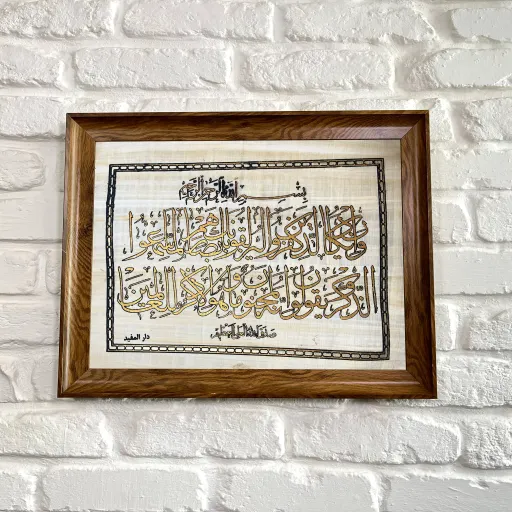 بسم الله الرحمن الرحيم
وإن يكاد الذين كفروا ليزلقونك بأبصارهم لما سمعوا
الذكر ويقولون إنه لمجنون وما هو إلا ذكر للعالمين
صدق الله العلي العظيم
دار المفيد